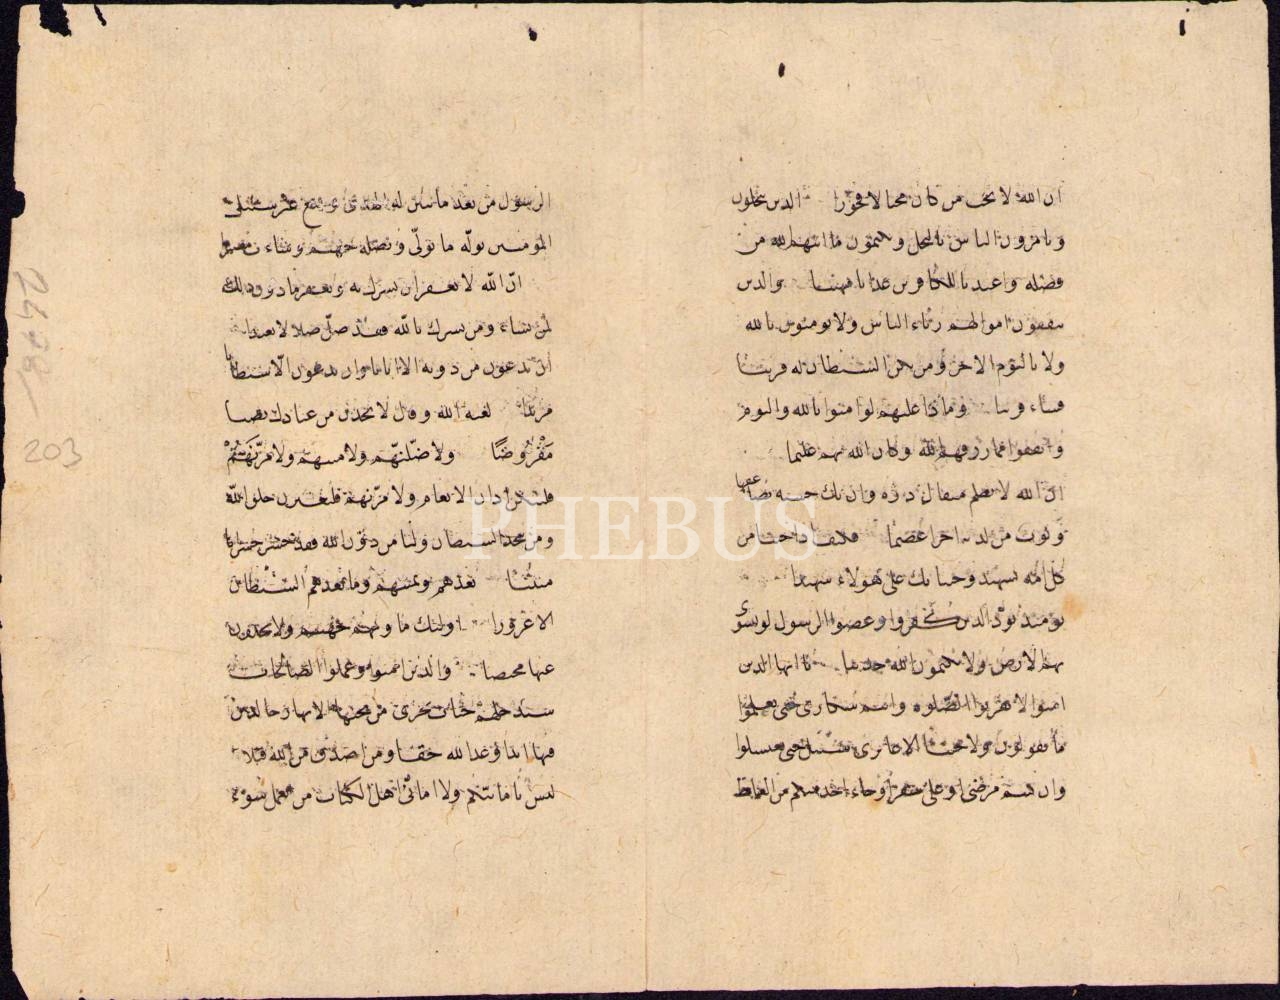 ان الله لا يحب من كان مختالا فخورا الذين يبخلون
ويامرون الناس بالبخل ويكتمون ما اتيهم الله من
فضله واعتدنا للكافرين عذابا مهينا والذين
ينفقون اموالهم رئاء الناس ولا يومنون بالله
ولا باليوم الاخر ومن يكن الشيطان له قرينا
فساء قرينا وماذا عليهم لو امنوا بالله واليوم
وانفقوا مما رزقهم الله وكان الله بهم عليما
ان الله لا يظلم مثقال ذره وان تك حسنه يضاعفها
ويوت من لدنه اجرا عظيما فكيف اذا جئنا من
كل امه بشهيد وجئنا بك على هولاء شهيدا
يومئذ يود الذين كفروا وعصوا الرسول لو تسوى
بهم الارض ولا يكتمون الله حديثا يا ايها الذين
امنوا لا تقربوا الصلوه وانتم سكارى حتى تعلموا
ما تقولون ولا جنبا الا عابرى سبيل حتى تغتسلوا
وان كنتم مرضى او على سفر او جاء احد منكم من الغائط
الرسول من بعد ما تبين له الهدى ويتبع غير سبيل
المومنين نوله ما تولى ونصله جهنم وساءت مصيرا
ان الله لا يغفر ان يشرك به ويغفر ما دون ذلك
لمن يشاء ومن يشرك بالله فقد ضل ضلالا بعيدا
ان يدعون من دونه الا اناثا وان يدعون الا شيطانا
مريدا لعنه الله وقال لاتخذن من عبادك نصيبا
مَفْرُوضًا ولاضلنهم ولامنينهم ولامرنهم
فليبتكن اذان الانعام ولامرنهم فليغيرن خلق الله
ومن يتخذ الشيطان وليا من دون الله فقد خسر خسرانا
مبينا يعدهم ويمنيهم وما يعدهم الشيطان
الا غرورا اولئك ماويهم جهنم ولا يجدون
عنها محيصا والذين امنوا وعملوا الصالحات
سندخلهم جنات تجرى من تحتها الانهار خالدين
فيها ابدا وعد الله حقا ومن اصدق من الله قيلا
ليس بامانيكم ولا امانى اهل الكتاب من يعمل سوء
203
PHEBUS